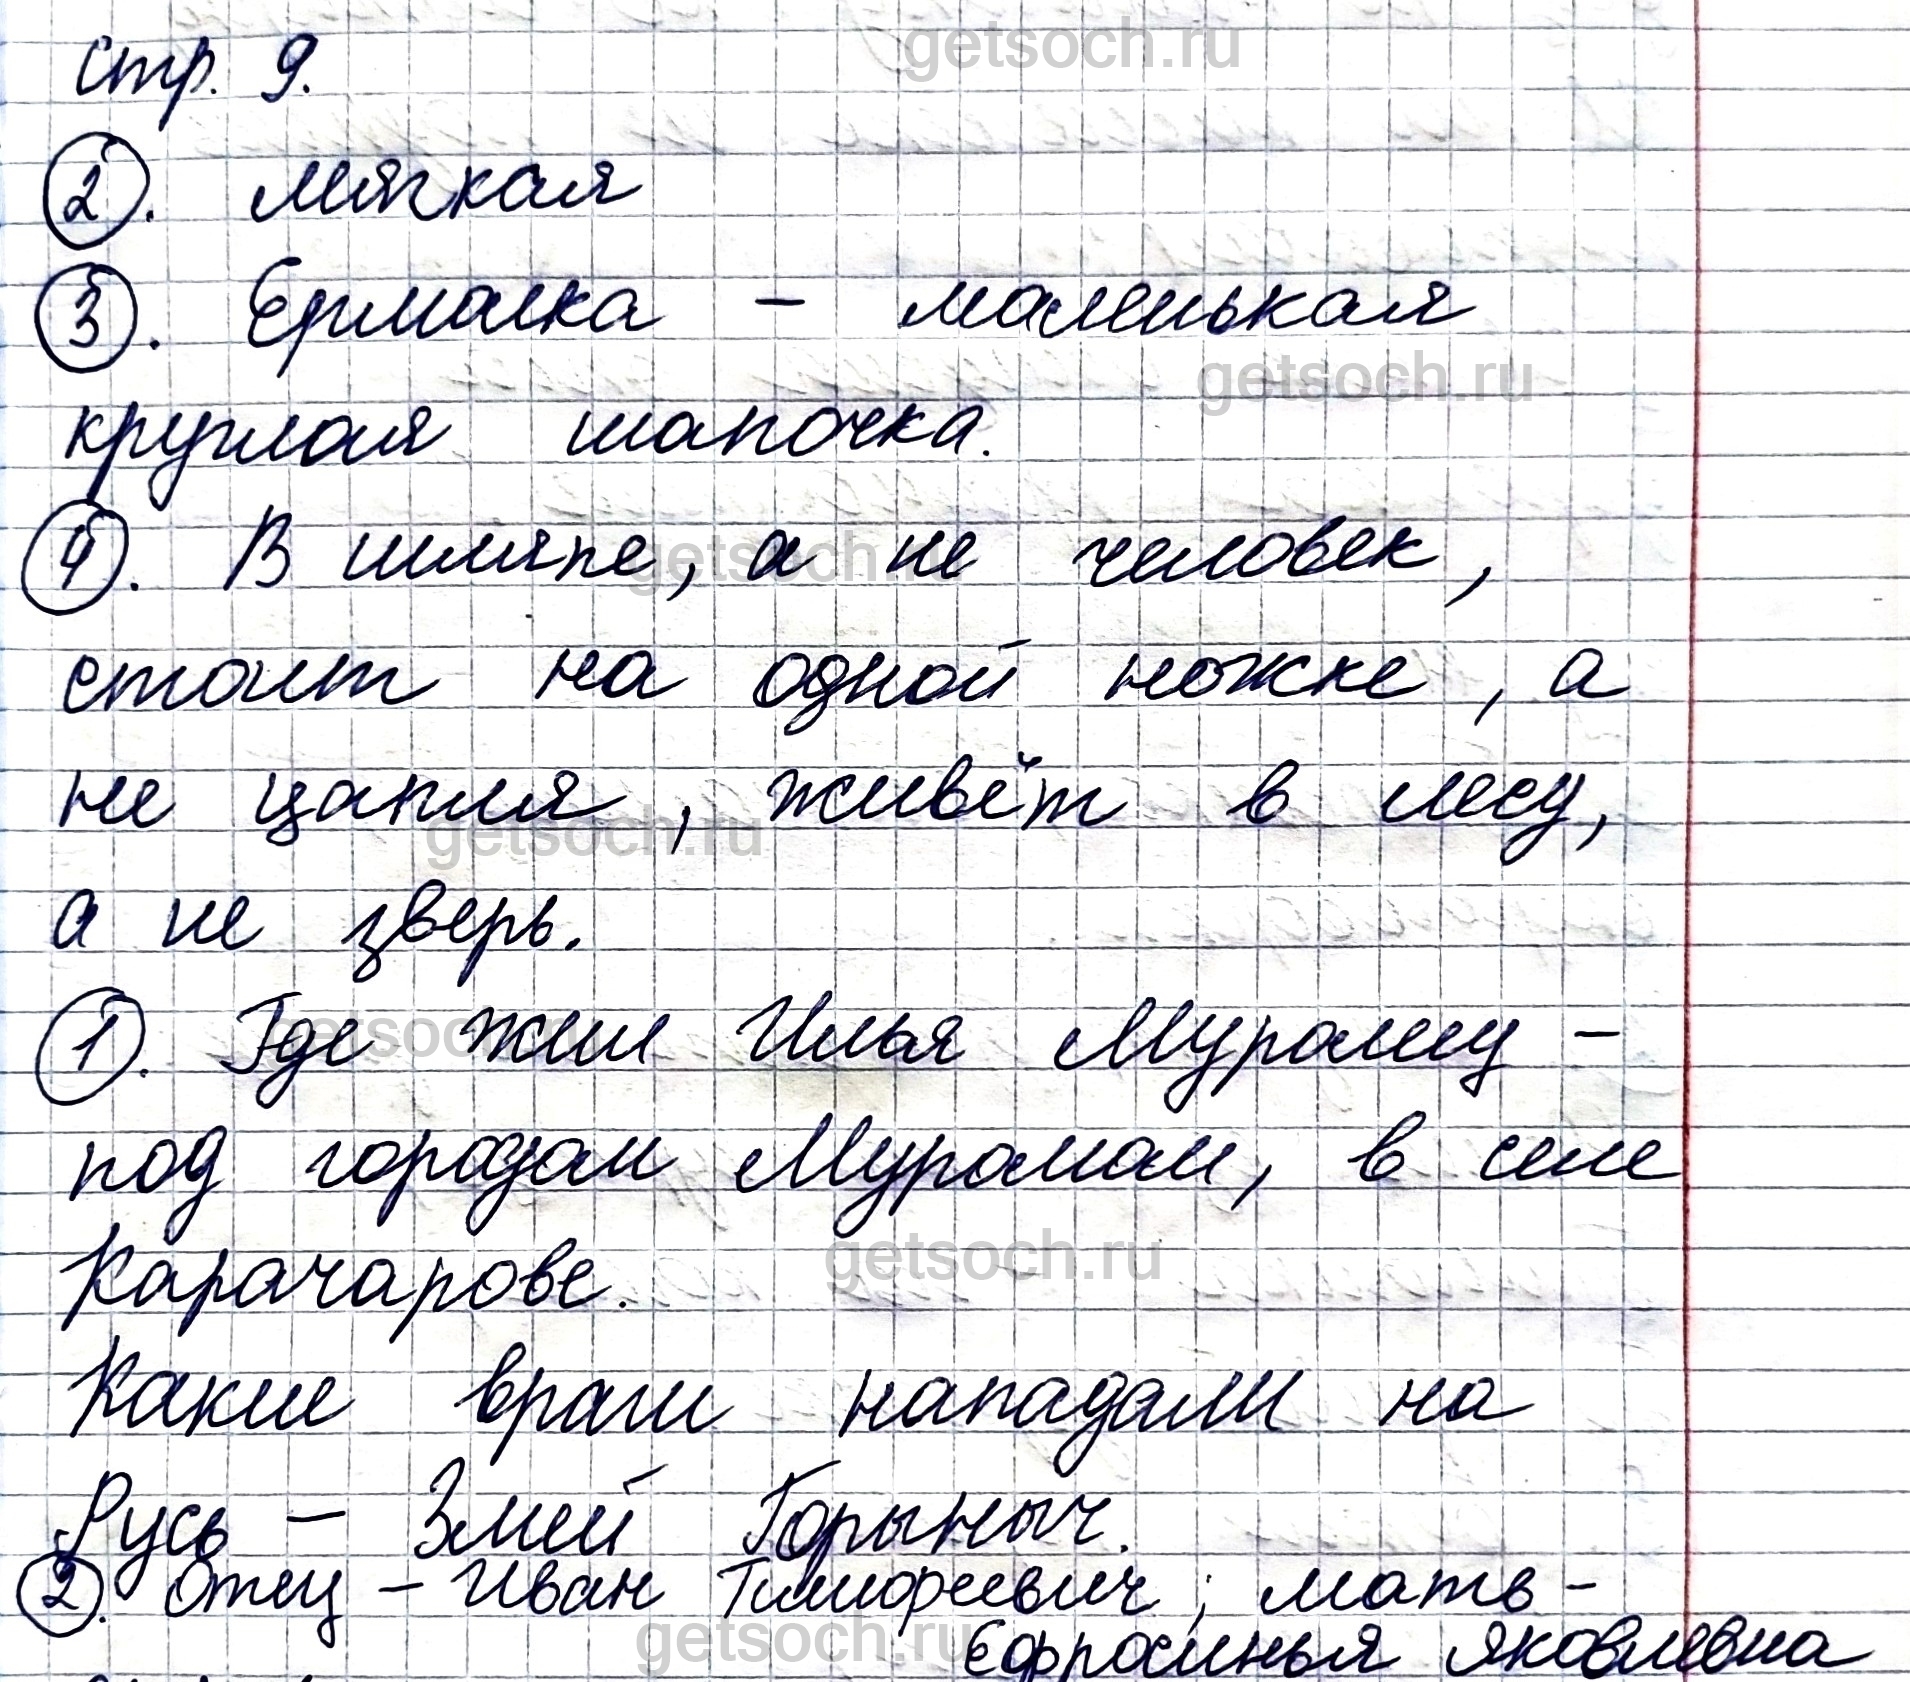 getsoch.ru
стр. 9.
2. мягкая
3. Ермолка – маленькая
getsoch.ru
круглая шапочка.
4. В шляпе, а не человек,
getsoch.ru
стоит на одной ножке, а
не цапля, живёт в лесу,
getsoch.ru
а не зверь.
1. Где жил Илья Муромец –
getsoch.ru
под городом Муромом, в селе
Карачарове.
getsoch.ru
Какие враги нападали на
Русь – Змей Горыныч.
2. Отец – Иван Тимофеевич; мать –
getsoch.ru
Ефросинья Яковлевна